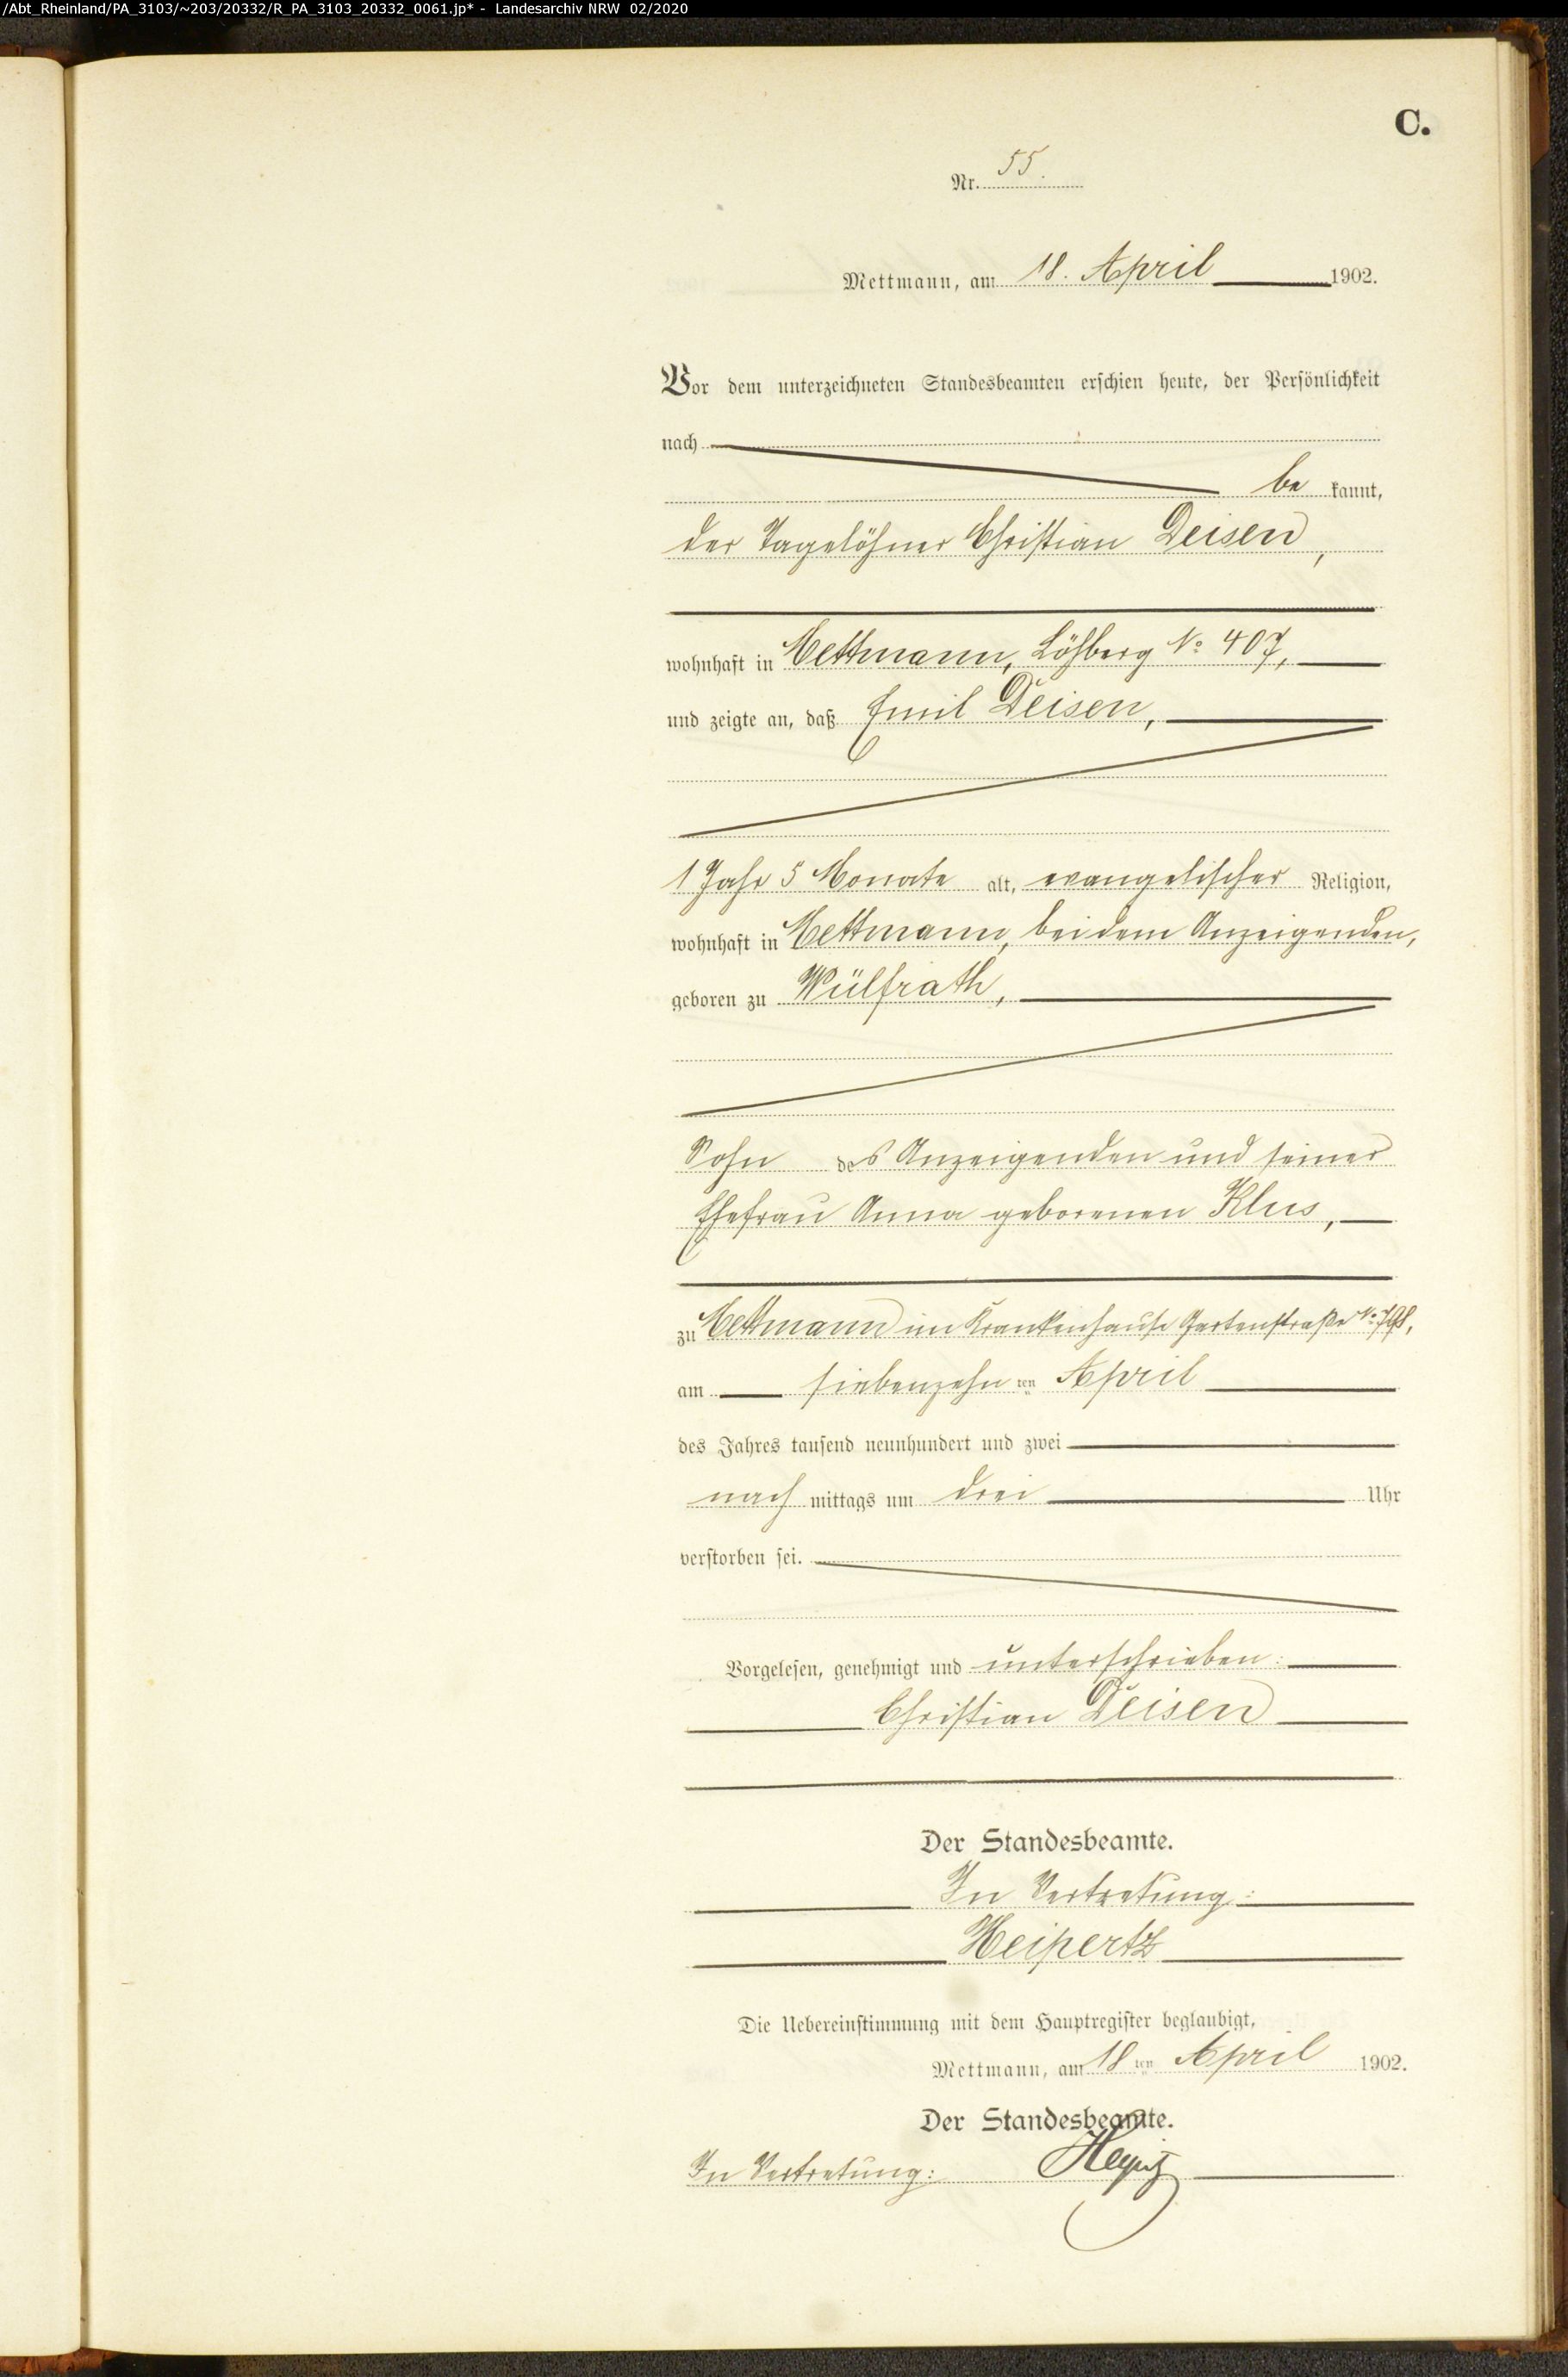 /Abt_Rheinland/PA_3103/~203/20332/R_PA_3103_20332_0061.jp* - Landesarchiv NRW 02/2020
C.
Nr. 55.
Mettmann, am 18. April 1902.
Vor dem unterzeichneten Standesbeamten erschien heute, der Persönlichkeit
nach
be kannt,
der Tagelöhner Christian Deisen,
wohnhaft in Mettmann, Löhberg No 407,
und zeigte an, daß Emil Deisen,
1 Jahr 5 Monate alt, evangelischer Religion,
wohnhaft in Mettmann, bei dem Anzeigenden,
geboren zu Wülfrath,
Sohn des Anzeigenden und seiner
Ehefrau Anna geborenen Klus,
zu Mettmann im Krankenhause Gartenstraße No 798,
am siebenzehn ten April
des Jahres tausend neunhundert und zwei
nach mittags um drei Uhr
verstorben sei.
Vorgelesen, genehmigt und unterschrieben:
Christian Deisen
Der Standesbeamte.
In Vertretung:
Heipertz
Die Uebereinstimmung mit dem Hauptregister beglaubigt,
Mettmann, am 18 ten April 1902.
Der Standesbeamte.
In Vertretung: